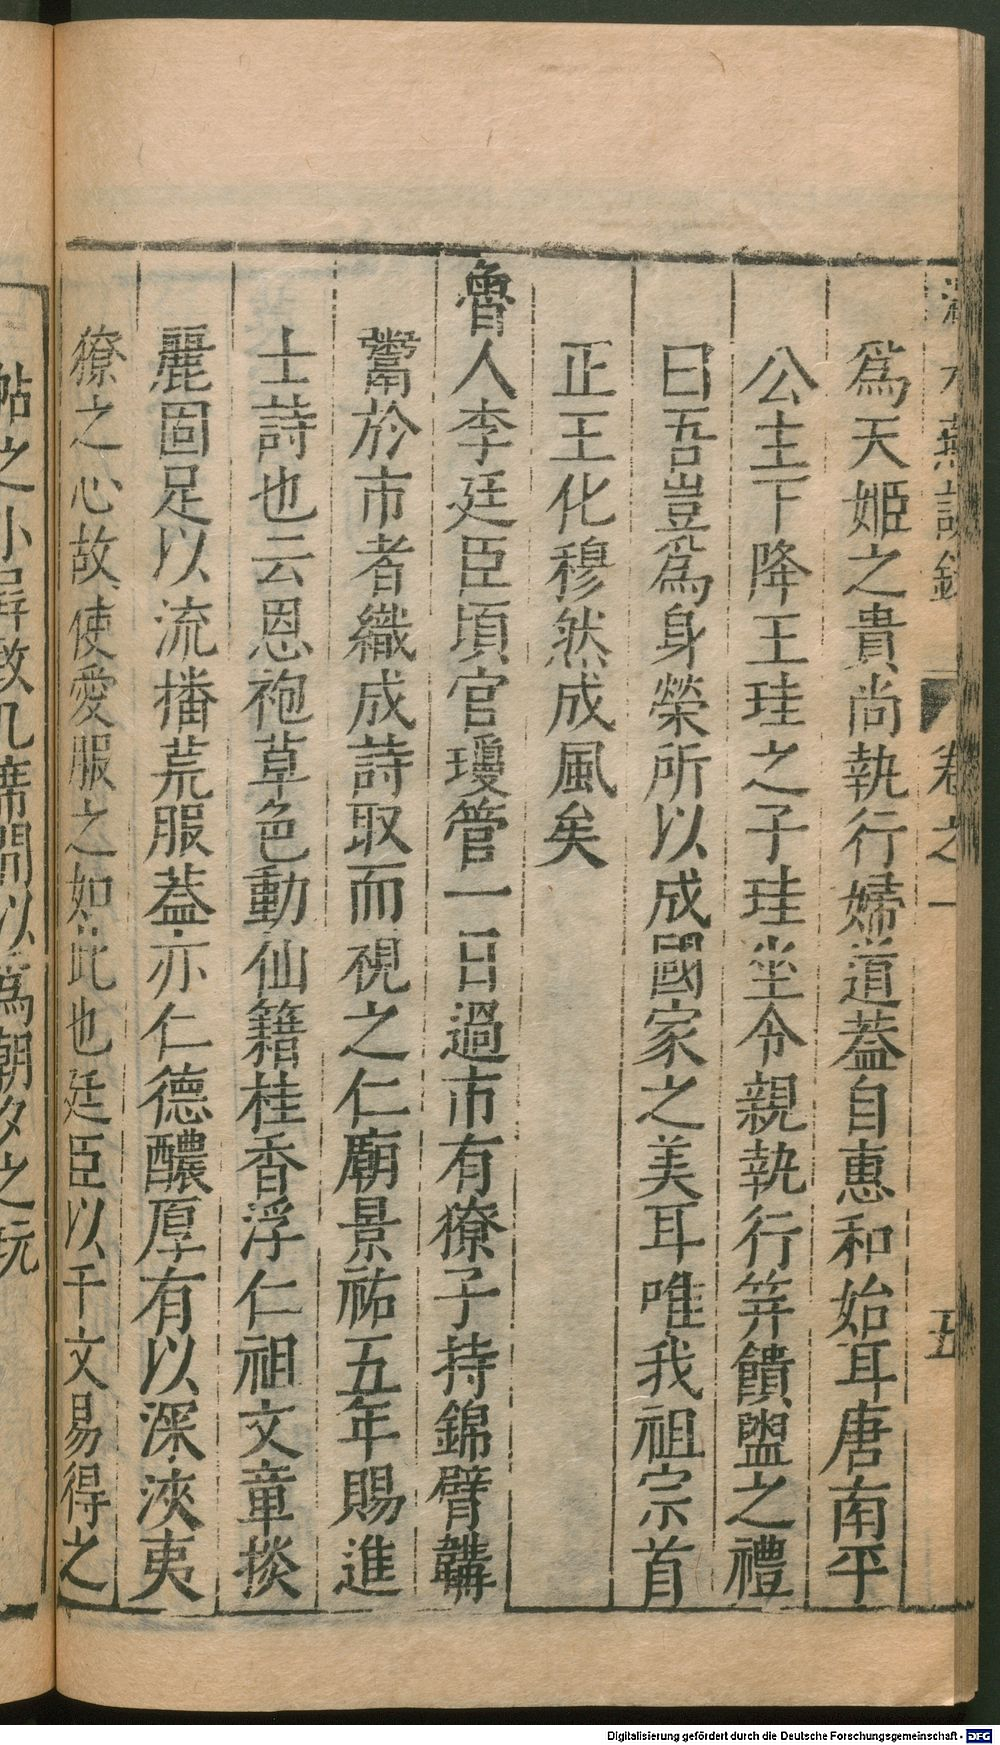 澠水燕談錄 卷之一 五
爲天姬之貴尚執行婦道蓋自惠和始耳唐南平
公主下降王珪之子珪坐令親執行笲饋盥之禮
曰吾豈爲身榮所以成國家之美耳唯我祖宗首
正王化穆然成風矣
魯人李廷臣頃官瓊管一日過市有獠子持錦臂韝
鬻於市者織成詩取而視之仁廟景祐五年賜進
士詩也云恩袍草色動仙籍桂香浮仁祖文章掞
麗固足以流播荒服蓋亦仁德醲厚有以深浹夷
獠之心故使愛服之如此也廷臣以千文易得之
帖之小屏致几席間以爲朝夕之玩
Digitalisierung gefördert durch die Deutsche Forschungsgemeinschaft - DFG